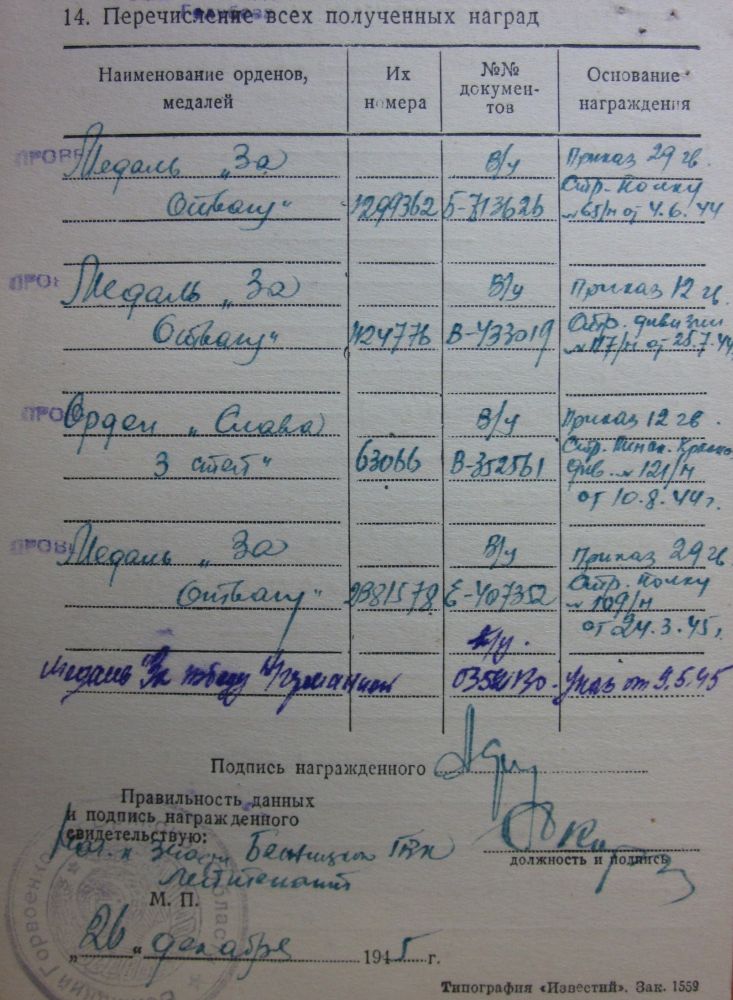 14. Перечисление всех полученных наград
Наименование орденов, медалей
Их номера
№№ документов
Основание награждения
ПРОВЕ
Медаль „За В/у Приказ 29 гв.
Отвагу" 1299362 Б-713626 Стр. полку
№65/н от 4.6.44
ПРОВ
Медаль „За В/у Приказ 12 гв.
Отвагу" 424776 В-433019 Стр. дивизии
№117/н от 25.7.44
ПРО
Орден „Слава В/у Приказ 12 гв.
3 степ" 63066 В-352561 Стр. Пинск. Красн.
див. №121/н
от 10.8.44 г.
ПРОВЕ
Медаль „За В/у Приказ 29 гв.
Отвагу" 2381578 Е-407352 Стр. полку
№109/н
от 24.3.45 г.
в/у.
Медаль "За победу н/Германией Указ от 9.5.45
Подпись награжденного
Правильность данных
и подпись награжденного
свидетельствую:
части Бежицкого ГВК
лейтенант
должность и подпись
М. П.
„26" декабря 1945 г.
Типография «Известий». Зак. 1559